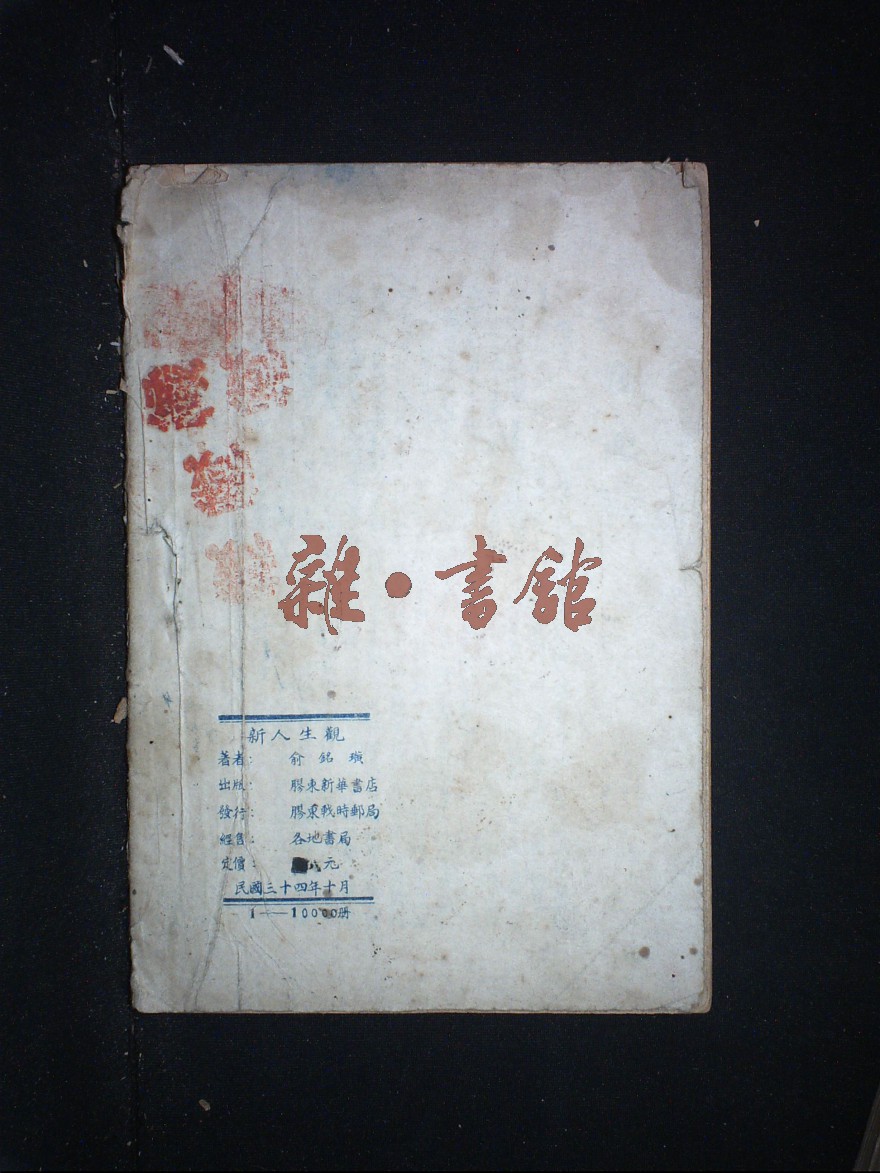 雜・書舘
新人生觀
著者： 俞銘璜
出版： 膠東新華書店
發行： 膠東戰時郵局
經售： 各地書局
定價： 元
民國三十四年十月
1——10000册